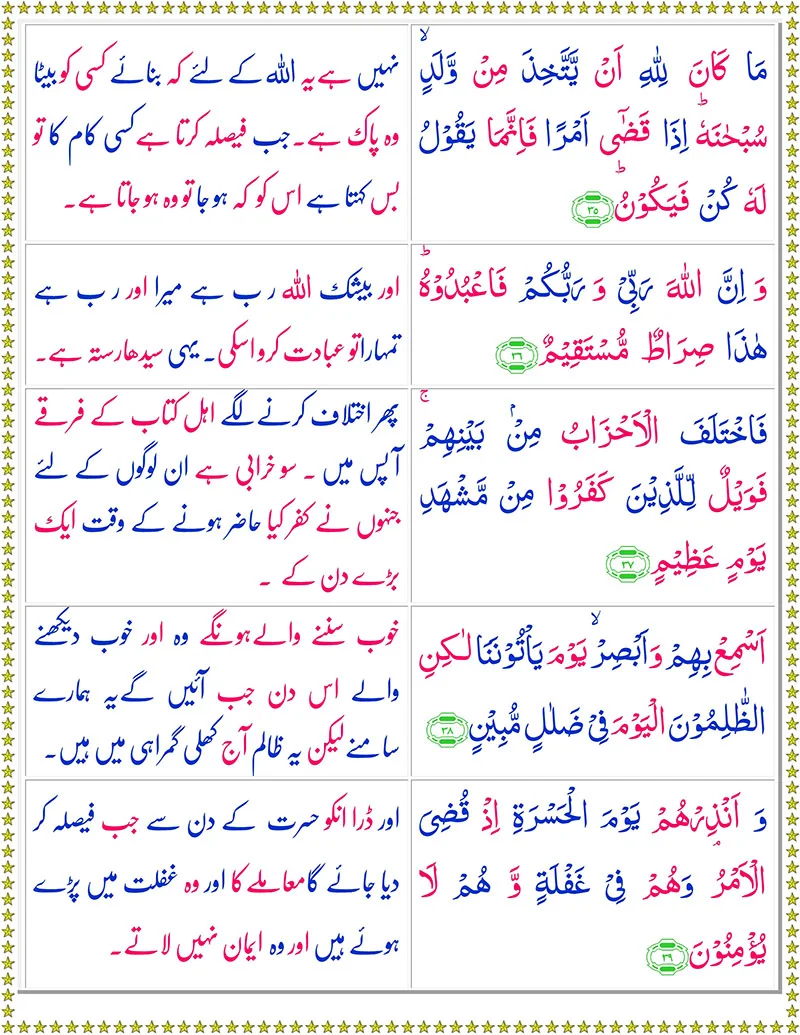 مَا كَانَ لِلّٰهِ اَنْ يَّتَّخِذَ مِنْ وَّلَدٍۙ
سُبْحٰنَهٗؕ اِذَا قَضٰٓى اَمْرًا فَاِنَّمَا يَقُوْلُ
لَهٗ كُنْ فَيَكُوْنُؕ ۳۵
نہیں ہے یہ اللہ کے لئے کہ بنائے کسی کو بیٹا
وہ پاک ہے۔ جب فیصلہ کرتا ہے کسی کام کا تو
بس کہتا ہے اس کو کہ ہو جا تو وہ ہو جاتا ہے۔
وَ اِنَّ اللّٰهَ رَبِّيْ وَ رَبُّكُمْ فَاعْبُدُوْهُؕ
هٰذَا صِرَاطٌ مُّسْتَقِيْمٌ ۳۶
اور بیشک اللہ رب ہے میرا اور رب ہے
تمہارا تو عبادت کرو اسکی۔ یہی سیدھا رستہ ہے۔
فَاخْتَلَفَ الْاَحْزَابُ مِنْۢ بَيْنِهِمْۚ
فَوَيْلٌ لِّلَّذِيْنَ كَفَرُوْا مِنْ مَّشْهَدِ
يَوْمٍ عَظِيْمٍ ۳۷
پھر اختلاف کرنے لگے اہل کتاب کے فرقے
آپس میں ۔ سو خرابی ہے ان لوگوں کے لئے
جنہوں نے کفر کیا حاضر ہونے کے وقت ایک
بڑے دن کے ۔
اَسْمِعْ بِهِمْ وَاَبْصِرْۙ يَوْمَ يَاْتُوْنَنَا لٰكِنِ
الظّٰلِمُوْنَ الْيَوْمَ فِيْ ضَلٰلٍ مُّبِيْنٍ ۳۸
خوب سننے والے ہونگے وہ اور خوب دیکھنے
والے اس دن جب آئیں گے یہ ہمارے
سامنے لیکن یہ ظالم آج کھلی گمراہی میں ہیں۔
وَ اَنْذِرْهُمْ يَوْمَ الْحَسْرَةِ اِذْ قُضِيَ
الْاَمْرُۘ وَهُمْ فِيْ غَفْلَةٍ وَّ هُمْ لَا
يُؤْمِنُوْنَ ۳۹
اور ڈرا انکو حسرت کے دن سے جب فیصلہ کر
دیا جائے گا معاملے کا اور وہ غفلت میں پڑے
ہوئے ہیں اور وہ ایمان نہیں لاتے۔